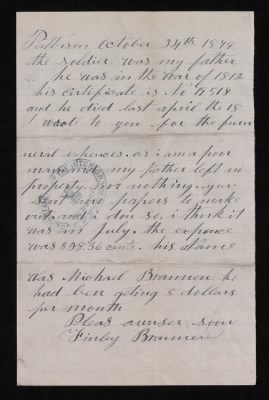 Patterson October 24th 1879
the soldier was my father
he was in the war of 1812
his certificate is No 9518
and he died last april the 18
I wrote to you for the fun
neral expences. as i am a poor
man and my father left no
property. nor nothing. you
sent me papers to make
out. and i don so. i think it
was in july. the expence
was $48.36 cents. his name
was Michael Brannen he
had ben geting 8 dollars
per month
Pleas awnser soon
Finley Brannen